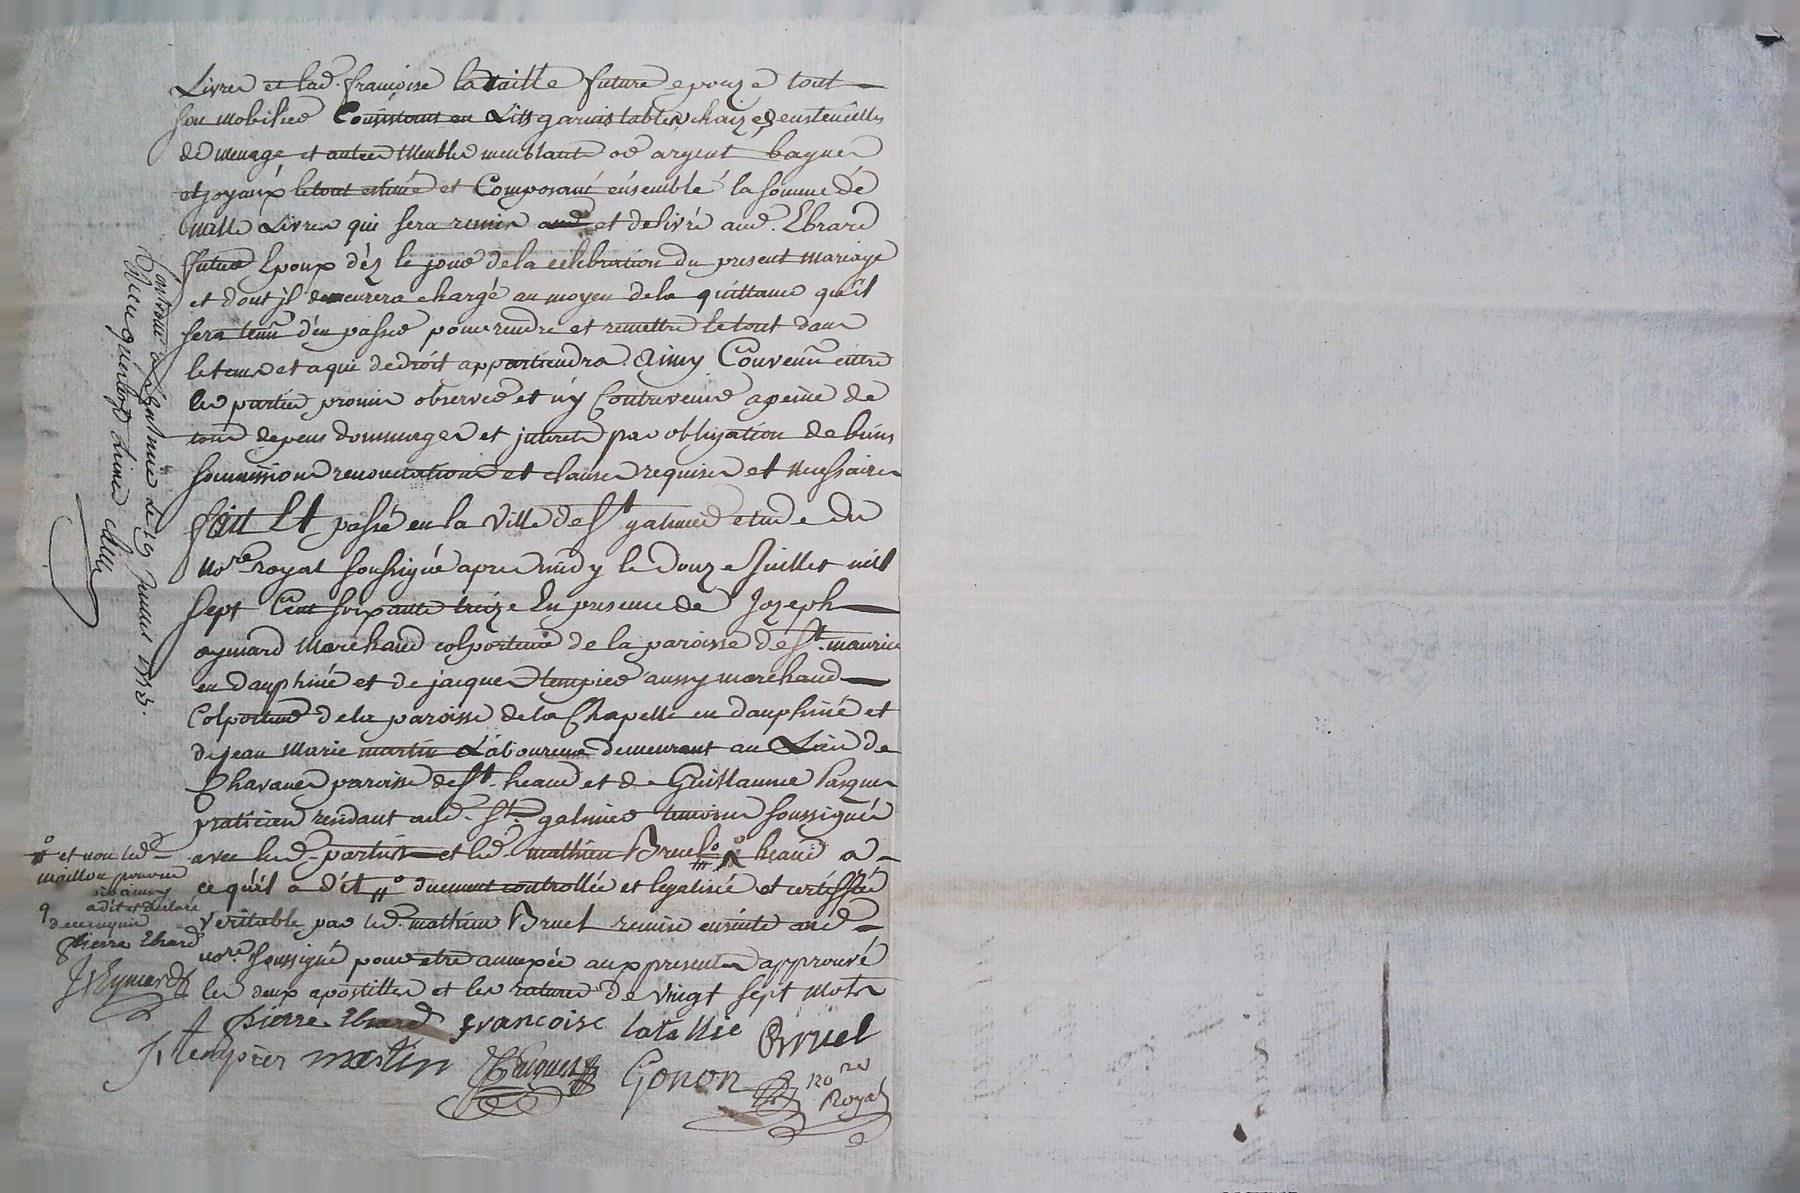 Livres et lad. francoise lataille future epouze tout
son mobilier Consistant en Lits garnis tables chaizes eustencilles
de menage et autres Meubles meublants or argent bagues
et joyaux le tout estimé et Composant ensemble la somme de
mille Livres qui sera remis aud et delivré aud. Ebrard
futur Epoux dés le jour de la celebration du present mariage
et dont jl demeurera chargé au moyen de la quittance qu'il
sera tenu d'en passer pour rendre et remettre le tout dans
le tems et a qui de droit appartiendra Ainsy Convenu entre
les parties promis observer et n'y Contrevenir a peine de
tous depens dommages et jnterets par obligation de biens
soumissions renonciations et clauses requises et necessaires
fait Et passé en la Ville de St galmier etude du
nore. royal soussigné apres midy le douze Juillet mil
sept Cent soixante treize En presence de Jozeph
aymard Marchand colporteur de la paroisse de St. maurice
en dauphiné et de jacques tempier aussy marchand
Colporteur de la paroisse de la Chapelle en dauphiné et
de jean Marie martin Laboureur demeurant au Lieu de
Chavanes paroisse de St. heand et de Guillaume Pasques
praticien residant aud. St. galmier temoins soussignés
avec lesd. parties et led. mathieu Bruel heand a
ce qu'il a dit duement controllée et legalisée et certiffiée
veritable par led. mathieu Bruel remise ensuite aud
nore. soussigné pour etre annexée aux presentes approuvé
les deux apostilles et les ratures de vingt sept mots
Pierre Ebrard francoise latallie Bruel
J. tempier martin Pasques Gonon nore
Royal
et non led
maillon pour
a dit et declaré
de ce enquis
Pierre Ebrard
J Eymard
Controllé a St Galmier le 19 Juillet 1773.